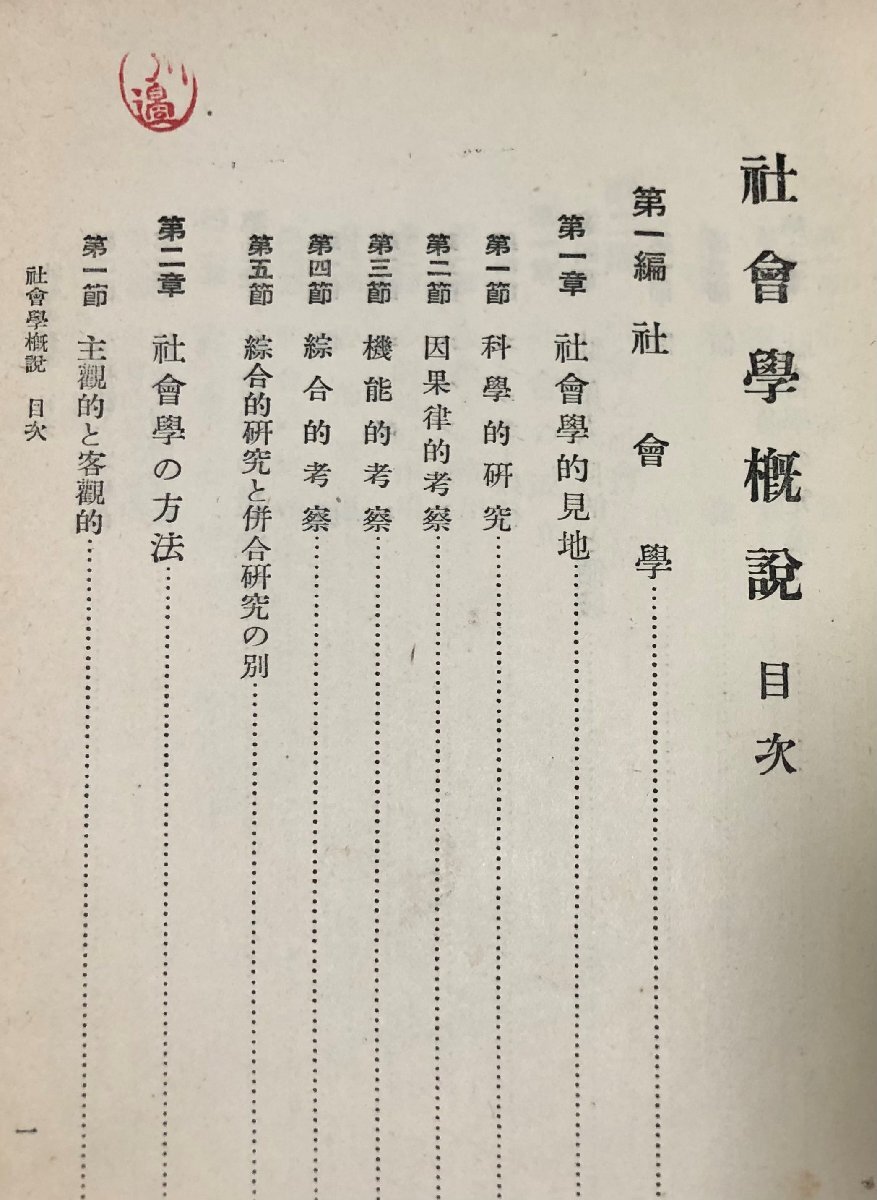 社會學槪說 目次
第一編 社會學
第一章 社會學的見地
第一節 科學的硏究
第二節 因果律的考察
第三節 機能的考察
第四節 綜合的考察
第五節 綜合的硏究と併合硏究の別
第二章 社會學の方法
第一節 主觀的と客觀的
社會學槪說 目次
一
川邊